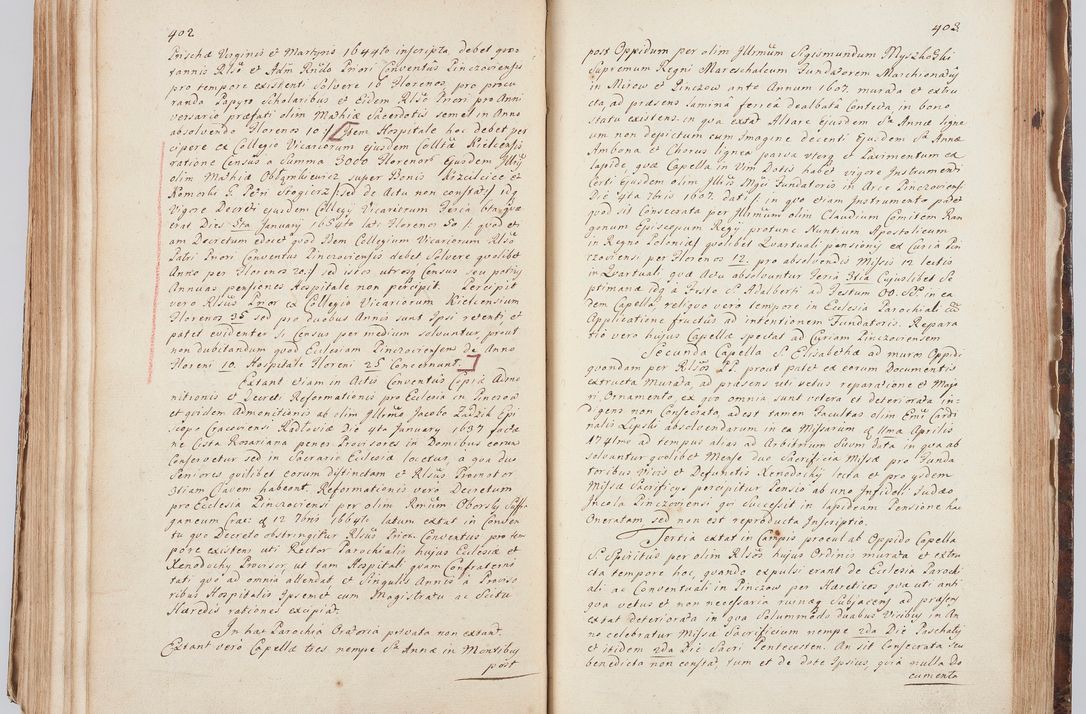 402
Prischæ Virginis et Martyris 1644to inscripta, debet quo-
tannis Rlso et Adm Rndo Priori Conventûs Pinczoviensis
pro tempore existenti Solvere 16 Florenos pro procu-
rando Papyro Scholaribus et Eidem Rlso Priori pro Anni
versario præfati olim Mathiæ Sacerdotis semel in Anno
absolvendo Florenos 10. Idem Hospitale hoc debet per
cipere ex Collegio Vicariorum ejusdem Collttæ Kielcensis
ratione Census a Summa 3000 Florenorũ Ejusdem Illris
olim Mathiæ Obłąmkiewicz super Bonis
Komorki S. Petri sed de Actu non constat idq
vigore Decreti ejusdem Collegij Vicariorum Feria 6ta quæ
erat Dies 5ta January 1654to lati Florenos 50 quod et-
iam Decretum edocet quod Idem Collegium Vicariorum Rlso
Patri Priori Conventûs Pinczoviensis debet Solvere quolibet
Anno per Florenos 20. sed istos utrosq Census seu potius
Annuas pensiones Hospitale non percipit. Percipit
vero Rlsus Prior ex Collegio Vicariorum Kielcensium
Florenos 35 sed pro duabus Annis sunt Ipsi retenti et
patet evidenter Census per medium solvuntur prout
non dubitandum quod Ecclesiam Pinczoviensem de Anno
Floreni 10. Hospitale Floreni 25 Concernant.
Extant etiam in Actis Conventûs Copiæ Admo
nitionis et Decreti Reformationis pro Ecclesia in Pinczow
et quidem Admonitionis ab olim Illmo Jacobo Zadzik Epi
scopo Cracoviensi Radłoviæ Die 4ta January 1637 factæ
ne Cista Rosariana penes Provisores in Domibus eorum
Conservetur sed in Sacrario Ecclesiæ locetur, a qua duo
Seniores quilibet eorum distinctam et Rlsus Promotor
3tiam Clavem habeant. Reformationis verò Decretum
pro Ecclesia Pinczoviensi per olim Rmũm Oborsky Suffr-
ganeum Crac: d 12 7bris 1664to latum extat in Conven
tu quo Decreto obstringitur Rlsus Prior Conventus pro tem
pore existens uti Rector Parochialis hujus Ecclesiæ et
Xenodochy Provisor, ut tam Hospitali quam Confraterni
tati quo ad omnia attendat et Singulis Annis a Proviso
ribus Hospitalis Ipsemet cum Magistratu ac Scitu
Hæredis rationes excipiat.
In hac Parochia Oratoria privata non extant.
Extant verò Capellæ tres nempe Stæ Annæ in Montibus
post
403
post Oppidum per olim Illrmum Sigismundum Myszkowski
Supremum Regni Mareschalcum Fundatorem Marchionatûs
in Mirow et Pinczow ante Annum 1607. murata et extru
cta, ad præsens lamina ferrea dealbata Contecta in bono
statu existens. in qua extat Altare Ejusdem Stæ Annæ ligne
um non depictum cum Imagine decenti Ejusdem Stæ Annæ
Ambona et Chorus lignea parva utorq et Pavimentum ex
lapide, quæ Capella in Vim Dotis habet vigore Instrumenti
Certi Ejusdem olim Illris Mgci Fundatoris in Arce Pinczoviensi
Die 4ta 7bris 1607. dati in quo etiam Instrumento patet
quod sit Consecrata per Illrmum olim Claudium Comitem Ran
gonum Episcopum Regij protunc Nuntium Apostolicum
in Regno Poloniæ quolibet Quartuali pensiony ex Curia Pin
czoviensi per Florenos 12. pro absolvendis Missis 12 lectis
in Quartuali, quæ Actu absolvuntur Feria 3tia Cujuslibet Se
ptimanæ idq à Festo St Adalberti ad Festum OO. SS. in ea
dem Capella reliquo verò tempore in Ecclesia Parochiali cũ
Applicatione fructûs ad intentionem Fundatoris. Repara
tio verò hujus Capellæ spectat ad Curiam Pinczoviensem
Secunda Capella S. Elisabethæ ad muros Oppidi
quondam per Rlsos PP. prout patet ex eorum Documentis
extructa Murata, ad præsens uti vetus reparatione et Majo
ri Ornamento, ex quo omnia sunt vetera et deteriorata in-
digens non Consecrata, adest tamen Facultas olim Emi Cardi
nalis Lipski absolvendarum in ea Missarum d 11ma Aprilis
1741mo ad tempus alias ad Arbitrium Suum data in qua ab
solvuntur quolibet Mense duo Sacrificia Missæ pro Funda
toribus Vivis et Defunctis Xenodochij lecta et pro ijsdem
Missæ Sacrificijs percipitur Pensio ab uno Infideli Judæo
Incola Pinczoviensi qui Successit in lapideam Pensione hac
Oneratam sed non est reproducta Inscriptio.
Tertia extat in Campis procul ab Oppido Capella
St Spiritûs per olim Rlsos hujus Ordinis murata et extru
cta tempore hoc, quando expulsi erant de Ecclesia Paroch
ali ac Conventuali in Pinczow per Hæreticos qua uti anti
qua vetus et non necessaria ruinæq Subjacens ad præsens
extat deteriorata in qua Solummodo duabus Vicibus in An
no celebratur Missæ Sacrificium nempe 2da Die Paschatis
et itidem 2da Die Sacri Pentecosten. An sit Consecrata seu
benedicta non constat, tum et de dote Ipsius, quia nulla Do
cumenta